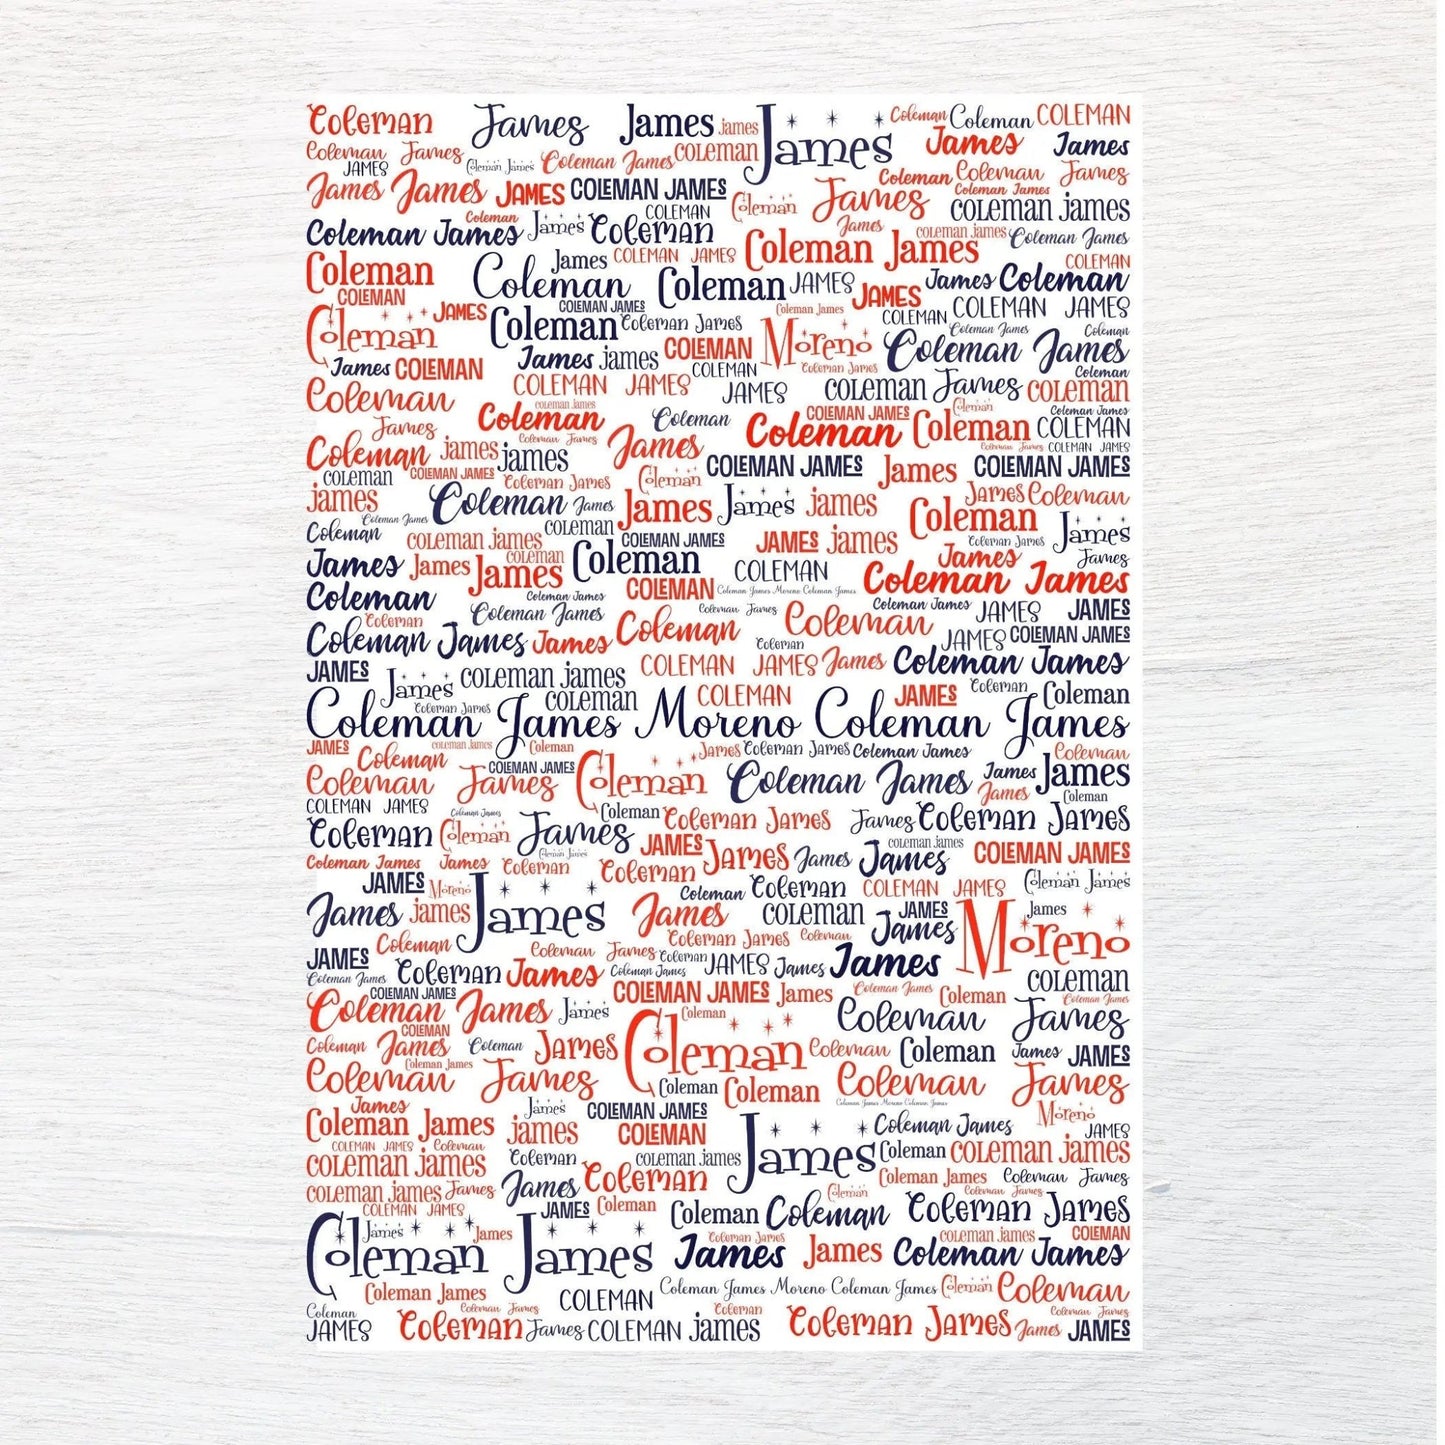 Coleman James James james James Coleman Coleman COLEMAN
Coleman James Coleman James Coleman James coleman James James
JAMES Coleman Coleman James
James James JAMES COLEMAN JAMES Coleman James Coleman James coleman james
Coleman James Coleman James Coleman COLEMAN James coleman james Coleman James
Coleman James COLEMAN JAMES Coleman James COLEMAN
COLEMAN Coleman Coleman JAMES JAMES James Coleman
Coleman JAMES COLEMAN JAMES Coleman James COLEMAN COLEMAN JAMES
Coleman Coleman James Moreno Coleman James Coleman
James COLEMAN James james COLEMAN COLEMAN Coleman James Coleman James
Coleman COLEMAN JAMES JAMES coleman James coleman Coleman
James Coleman coleman james Coleman COLEMAN JAMES Coleman Coleman James
Coleman james james Coleman James James Coleman Coleman COLEMAN
coleman COLEMAN JAMES Coleman James Coleman COLEMAN JAMES James Coleman James COLEMAN JAMES
COLEMAN JAMES
james Coleman James James James james James Coleman
Coleman Coleman James coleman COLEMAN JAMES JAMES james Coleman Coleman James James
coleman james coleman James James
James James James Coleman COLEMAN Coleman James
Coleman Coleman James COLEMAN Coleman James Moreno Coleman James
Coleman Coleman James Coleman Coleman James Coleman Coleman James JAMES JAMES
Coleman James James Coleman JAMES COLEMAN JAMES
JAMES James coleman james COLEMAN JAMES James Coleman James
Coleman James coleman COLEMAN JAMES Coleman Coleman
Coleman James Moreno Coleman James
JAMES Coleman coleman james Coleman James Coleman James Coleman James Coleman
Coleman James COLEMAN JAMES Coleman Coleman James James James
COLEMAN JAMES Coleman James Coleman James Coleman
Coleman Coleman James Coleman James James Coleman James
Coleman James James Coleman Coleman James JAMES James James James coleman james COLEMAN JAMES
Coleman James
JAMES Moreno James Coleman Coleman COLEMAN JAMES Coleman James
James james James coleman JAMES James Moreno James
JAMES Coleman Coleman James Coleman James Coleman
Coleman James Coleman James Coleman James Coleman JAMES James James coleman
COLEMAN JAMES COLEMAN JAMES James Coleman James Coleman Coleman James
Coleman James James Coleman Coleman James
Coleman James COLEMAN Coleman James Coleman Coleman Coleman James JAMES
Coleman James Coleman James Coleman Coleman Coleman James
James James COLEMAN JAMES Coleman James Moreno Coleman James Moreno
Coleman James james COLEMAN James Coleman James JAMES
COLEMAN JAMES Coleman
coleman james Coleman coleman james Coleman coleman james
coleman james James James Coleman Coleman Coleman James Coleman James
COLEMAN JAMES JAMES Coleman Coleman Coleman Coleman James
Coleman James James James Coleman James James James Coleman James coleman james COLEMAN
Coleman James Coleman James Moreno Coleman James Coleman Coleman
Coleman Coleman James COLEMAN Coleman Coleman James
JAMES Coleman James COLEMAN james Coleman James James JAMES